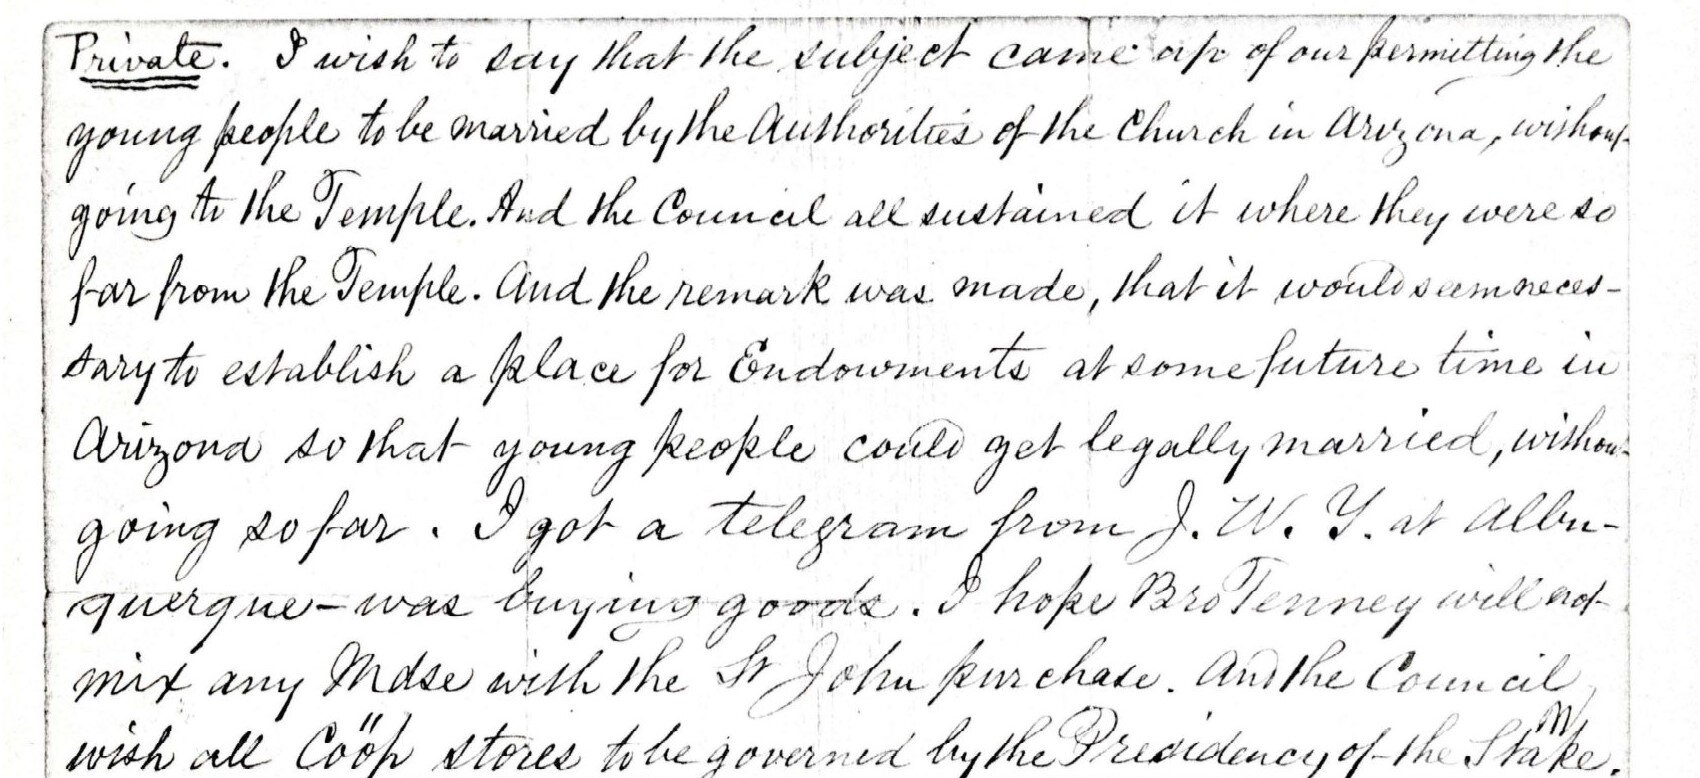 Private. I wish to say that the subject came up of our permitting the
young people to be married by the Authorities of the Church in Arizona, without
going to the Temple. And the Council all sustained it where they were so
far from the Temple. And the remark was made, that it would seem neces-
sary to establish a place for Endowments at some future time in
Arizona so that young people could get legally married, without
going so far. I got a telegram from J. W. Y. at Albu-
querque - was buying goods. I hope Bro Tenney will not
mix any Mdse with the St John purchase. And the Council
wish all Coöp stores to be governed by the Presidency of the Stake.